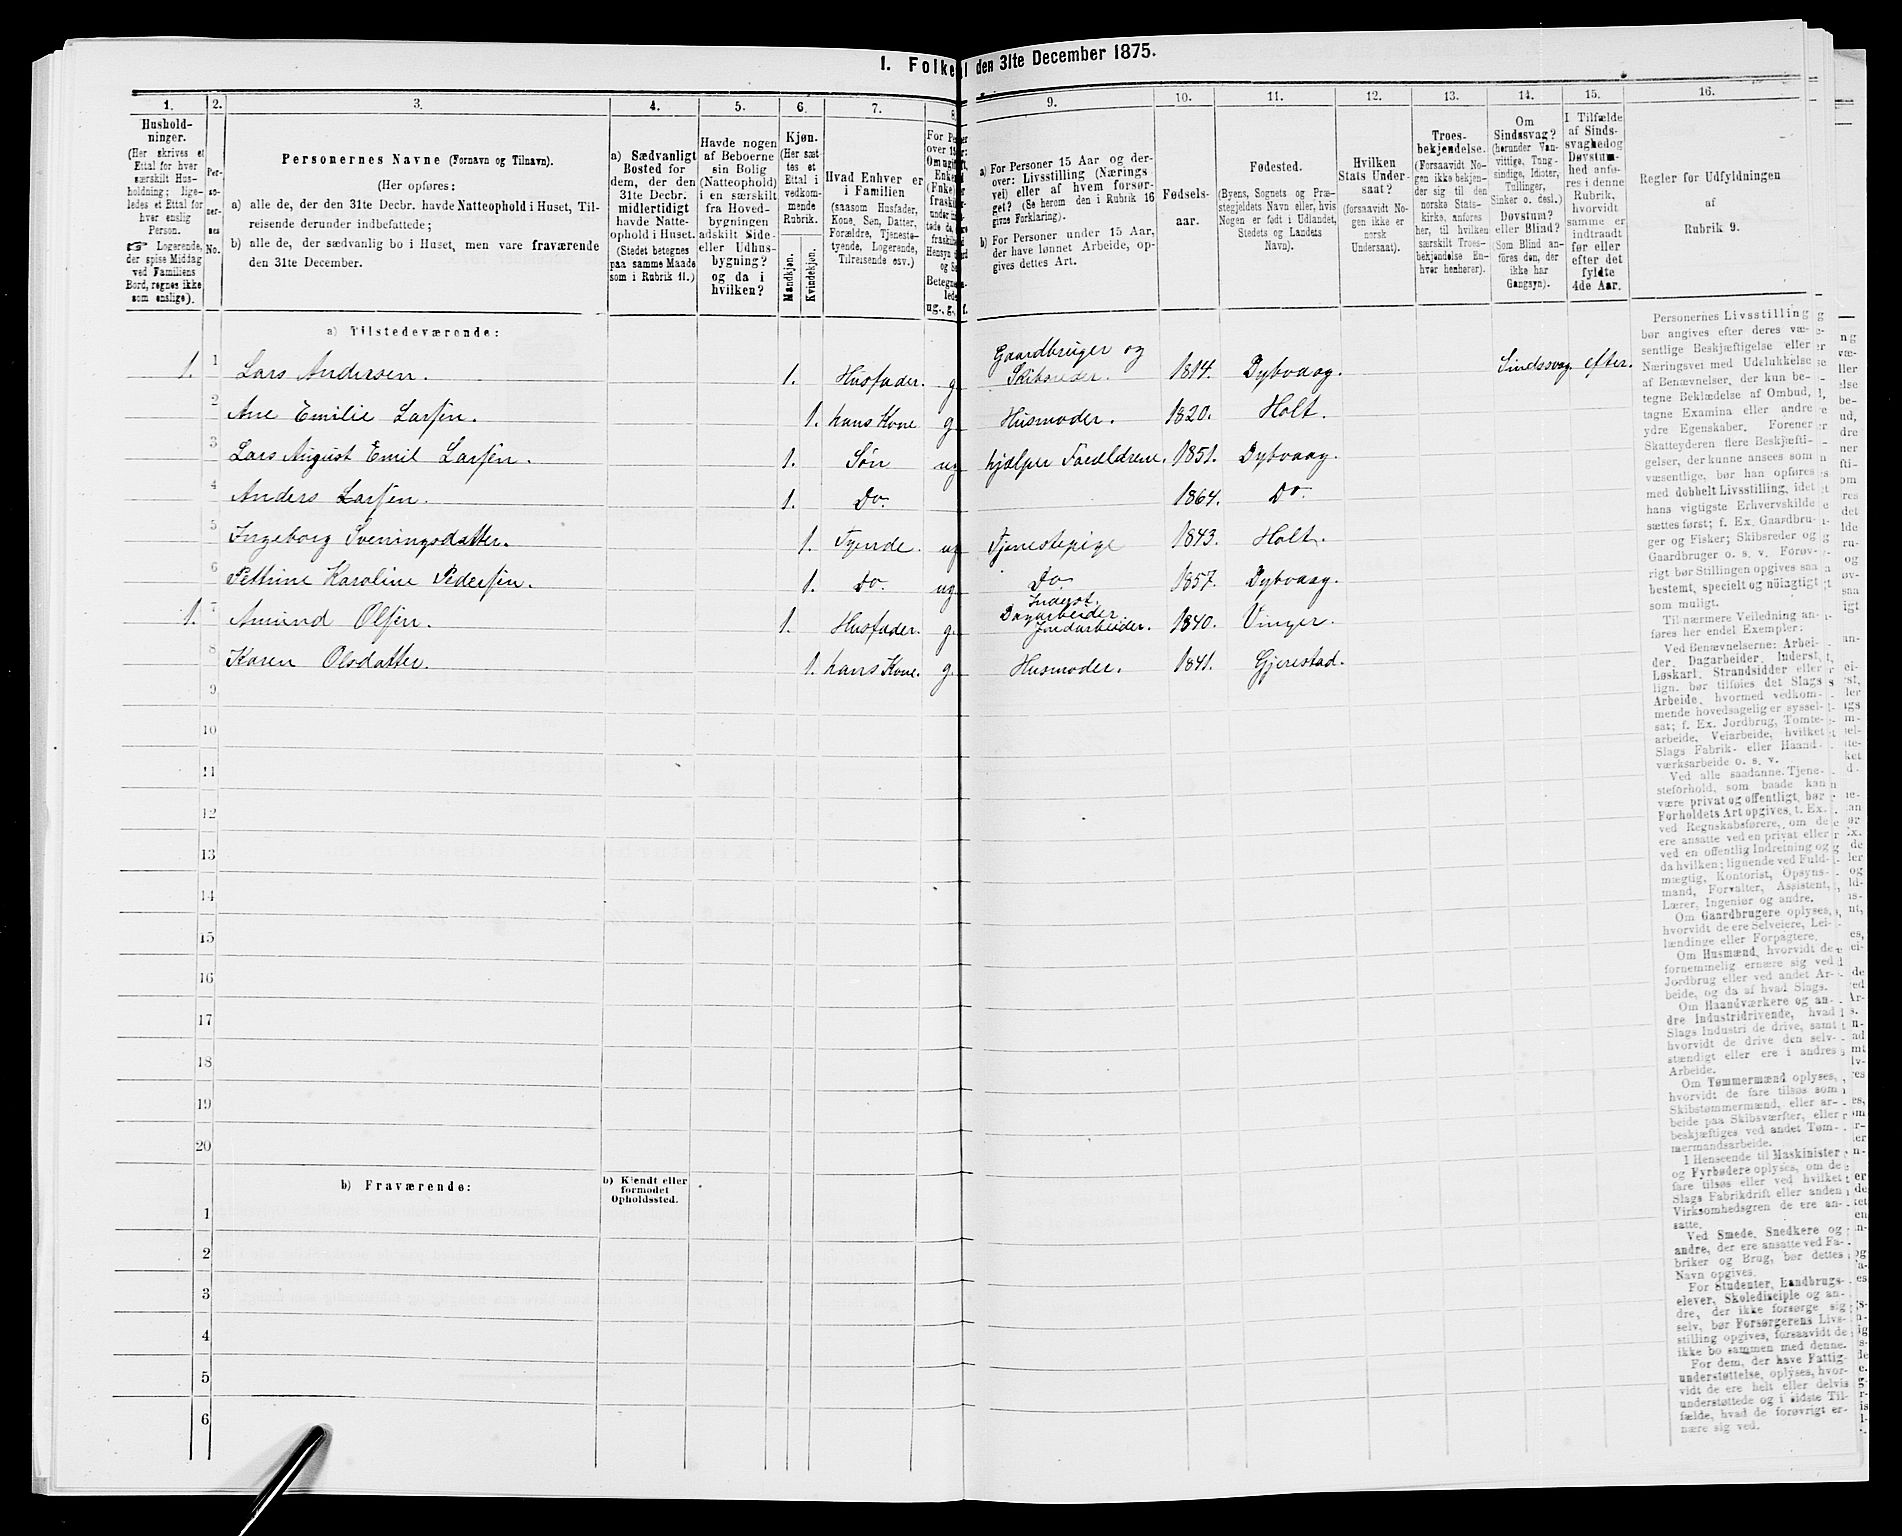 1. Folketal den 31te December 1875.
1. 2. 3. 4. 5. 6. 7. 8. 9. 10. 11. 12. 13. 14. 15. 16.
Hushold-
ninger.
(Her skrives et
Ettal for hver
særskilt Hus-
holdning; lige-
ledes et Ettal for
hver enslig
Person.
☞ Logerende,
der spise Middag
ved Familiens
Bord, regnes ikke
som enslige).
Per-
so-
ner-
nes
No.
Personernes Navne (Fornavn og Tilnavn).
(Her opføres:
a) alle de, der den 31te Decbr. havde Natteophold i Huset, Til-
reisende derunder indbefattede;
b) alle de, der sædvanlig bo i Huset, men vare fraværende
den 31te December.
a) Sædvanligt
Bosted for
dem, der den
31te Decbr.
midlertidigt
havde Natte-
ophold i Huset.
(Stedet betegnes
paa samme Maade
som i Rubrik 11.)
Havde nogen
af Beboerne
sin Bolig
(Natteophold)
i en særskilt
fra Hoved-
bygningen
adskilt Side-
eller Udhus-
bygning?
og da i
hvilken?
Kjøn.
(Her sæt
tes et
Ettal i
vedkom-
mende
Rubrik.
Mandkjøn.
Kvindekjøn.
Hvad Enhver er
i Familien
(saasom Husfader,
Kone, Søn, Datter,
Forældre, Tjeneste-
tyende, Logerende,
Tilreisende osv.)
ug., g.,
a) For Personer 15 Aar og der-
over: Livsstilling (Nærings
vei) eller af hvem forsør-
get? (Se herom den i Rubrik 16
givne Forklaring).
b) For Personer under 15 Aar,
der have lønnet Arbeide, op-
gives dettes Art.
Fødsels-
aar.
Fødested.
(Byens, Sognets og Præ-
stegjeldets Navn eller, hvis
Nogen er født i Udlandet,
Stedets og Landets
Navn).
Hvilken
Stats Under-
saat?
(forsaavidt No-
gen ikke er
norsk
Undersaat).
Troes-
bekjendelse.
(Forsaavidt No-
gen ikke bekjen-
der sig til den
norske Stats-
kirke, anføres
her, til hvilken
særskilt Troes-
bekjendelse En-
hver henhører).
Om
Sindssvag?
(herunder Van-
vittige, Tung-
sindige, Idioter,
Tullinger,
Sinker o. desl.)
Døvstum?
eller Blind?
(Som Blind an-
føres den, der
ikke har
Gangsyn).
I Tilfælde
af Sinds-
svaghed og
Døvstum-
hed anfø-
res i denne
Rubrik,
hvorvidt
samme er
indtraadt
før eller
efter det
fyldte
4de Aar.
Regler for Udfyldningen
af
Rubrik 9.
a) Tilstedeværende:
1. 1 Lars Andersen. 1. Husfader. g. Gaardbruger og Skibsreder. 1814. Dybvaag. Sindssvag efter.
2 Ane Emilie Larsen. 1. hans Kone g. Husmoder. 1820. Holt.
3 Lars August Emil Larsen. 1. Søn ug hjælper Forældrene. 1851. Dybvaag.
4 Anders Larsen. 1. Do. 1864. Do.
5 Ingeborg Sveningsdatter. 1. Tyende. ug Tjenestepige 1843. Holt.
6 Pettrine Karoline Pedersen. 1. Do. ug Do 1857. Dybvaag.
1. 7 Amund Olsen. 1. Husfader. g. Inderst. Dagarbeider. Jordarbeider. 1840. Vinger.
8 Karen Olsdatter. 1. hans Kone. g. Husmoder. 1841. Gjerestad.
9
10
11
12
13
14
15
16
17
18
19
20
b) Fraværende:
b) Kjendt eller
formodet
Opholdssted.
1
2
3
4
5
6
Personernes Livsstilling
bør angives efter deres væ-
sentlige Beskjæftigelse eller
Næringsvei med Udelukkelse
af Benævnelser, der kun be-
tegne Beklædelse af Ombud,
tagne Examina eller andre
ydre Egenskaber. Forener
Skatteyderen flere Beskjæfti-
gelser, der kunne ansees som
væsentlige, bør han opføres
med dobbelt Livsstilling, idet
hans vigtigste Erhvervskilde
sættes først; f. Ex. Gaardbru-
ger og Fisker; Skibsreder og
Gaardbruger o. s. v. Forøv-
rigt bør Stillingen opgives saa
bestemt, specielt og nøiagtigt
som muligt.
Til nærmere Veiledning an-
føres her endel Exempler:
Ved Benævnelserne: Arbei-
der, Dagarbeider, Inderst,
Løskarl, Strandsidder eller
lign. bør tilføies det Slags
Arbeide, hvormed vedkom-
mende hovedsagelig er syssel-
sat; f. Ex. Jordbrug, Tomte-
arbeide, Veiarbeide, hvilket
Slags Fabrik- eller Haand-
værksarbeide o. s. v.
Ved alle saadanne Tjene-
steforhold, som baade kan
være privat og offentligt, bør
Forholdets Art opgives, t. Ex.
ved Regnskabsførere, om de
ere ansatte ved en privat eller
ved en offentlig Indretning og
da hvilken; lignende ved Fuld-
mægtig, Kontorist, Opsyns-
mand, Forvalter, Assistent,
Lærer, Ingeniør og andre.
Om Gaardbrugere oplyses,
hvorvidt de ere Selveiere, Lei-
lændinge eller Forpagtere.
Om Husmænd, hvorvidt de
fornemmelig ernære sig ved
Jordbrug eller ved andet Ar-
beide, og da af hvad Slags.
Om Haandværkere og an-
dre Industridrivende, hvad
Slags Industri de drive, samt
hvorvidt de drive den selv-
stændigt eller ere i andres
Arbeide.
Om Tømmermænd oplyses,
hvorvidt de fare tilsøs som
Skibstømmermænd, eller ar-
beide paa Skibsværfter, eller
beskjæftiges ved andet Tøm-
mermandsarbeide.
I Henseende til Maskinister
og Fyrbødere oplyses, om de
fare tilsøs eller ved hvilket
Slags Fabrikdrift eller anden
Virksomhedsgren de ere an-
satte.
Ved Smede, Snedkere og
andre, der ere ansatte ved Fa-
briker og Brug, bør dettes
Navn opgives.
For Studenter, Landbrugs-
elever, Skoledisciple og an-
dre, der ikke forsørge sig
selv, bør Forsørgerens Livs-
stilling opgives, forsaavidt de
ikke bo sammen med denne.
For dem, der have Fattig-
understøttelse, oplyses, hvor-
vidt de ere helt eller delvis
understøttede og i sidste Til-
fælde, hvad de forøvrigt er-
nære sig ved.